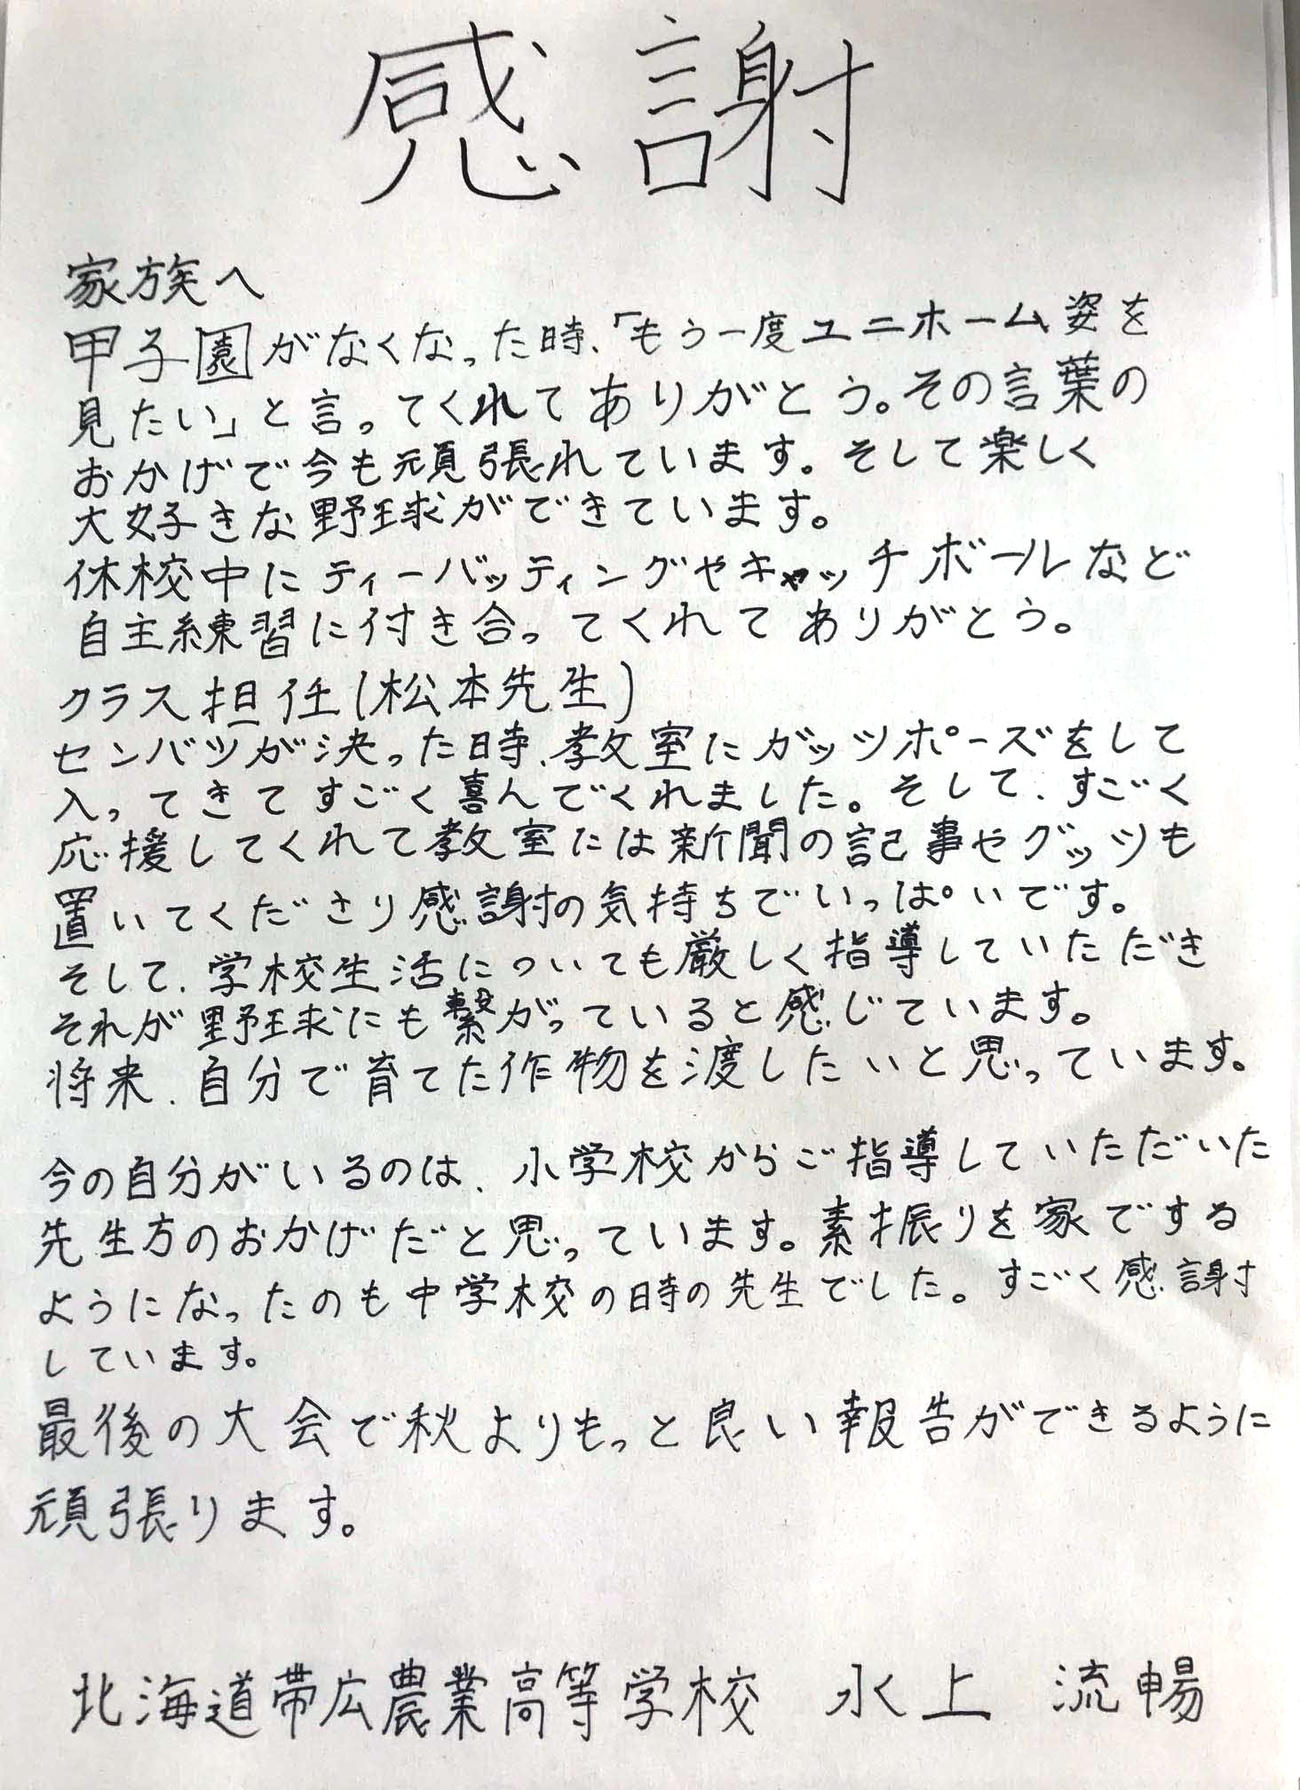 感謝
家族へ
甲子園がなくなった時、「もう一度ユニホーム姿を
見たい」と言ってくれてありがとう。その言葉の
おかげで今も頑張れています。そして楽しく
大好きな野球ができています。
休校中にティーバッティングやキャッチボールなど
自主練習に付き合ってくれてありがとう。
クラス担任(松本先生)
センバツが決った時、教室にガッツポーズをして
入ってきてすごく喜んでくれました。そして、すごく
応援してくれて教室には新聞の記事やグッツも
置いてくださり感謝の気持ちでいっぱいです。
そして、学校生活についても厳しく指導していただき
それが野球にも繋がっていると感じています。
将来、自分で育てた作物を渡したいと思っています。
今の自分がいるのは、小学校からご指導していただいた
先生方のおかげだと思っています。素振りを家でする
ようになったのも中学校の時の先生でした。すごく感謝
しています。
最後の大会で秋よりもっと良い報告ができるように
頑張ります。
北海道帯広農業高等学校 水上 流暢